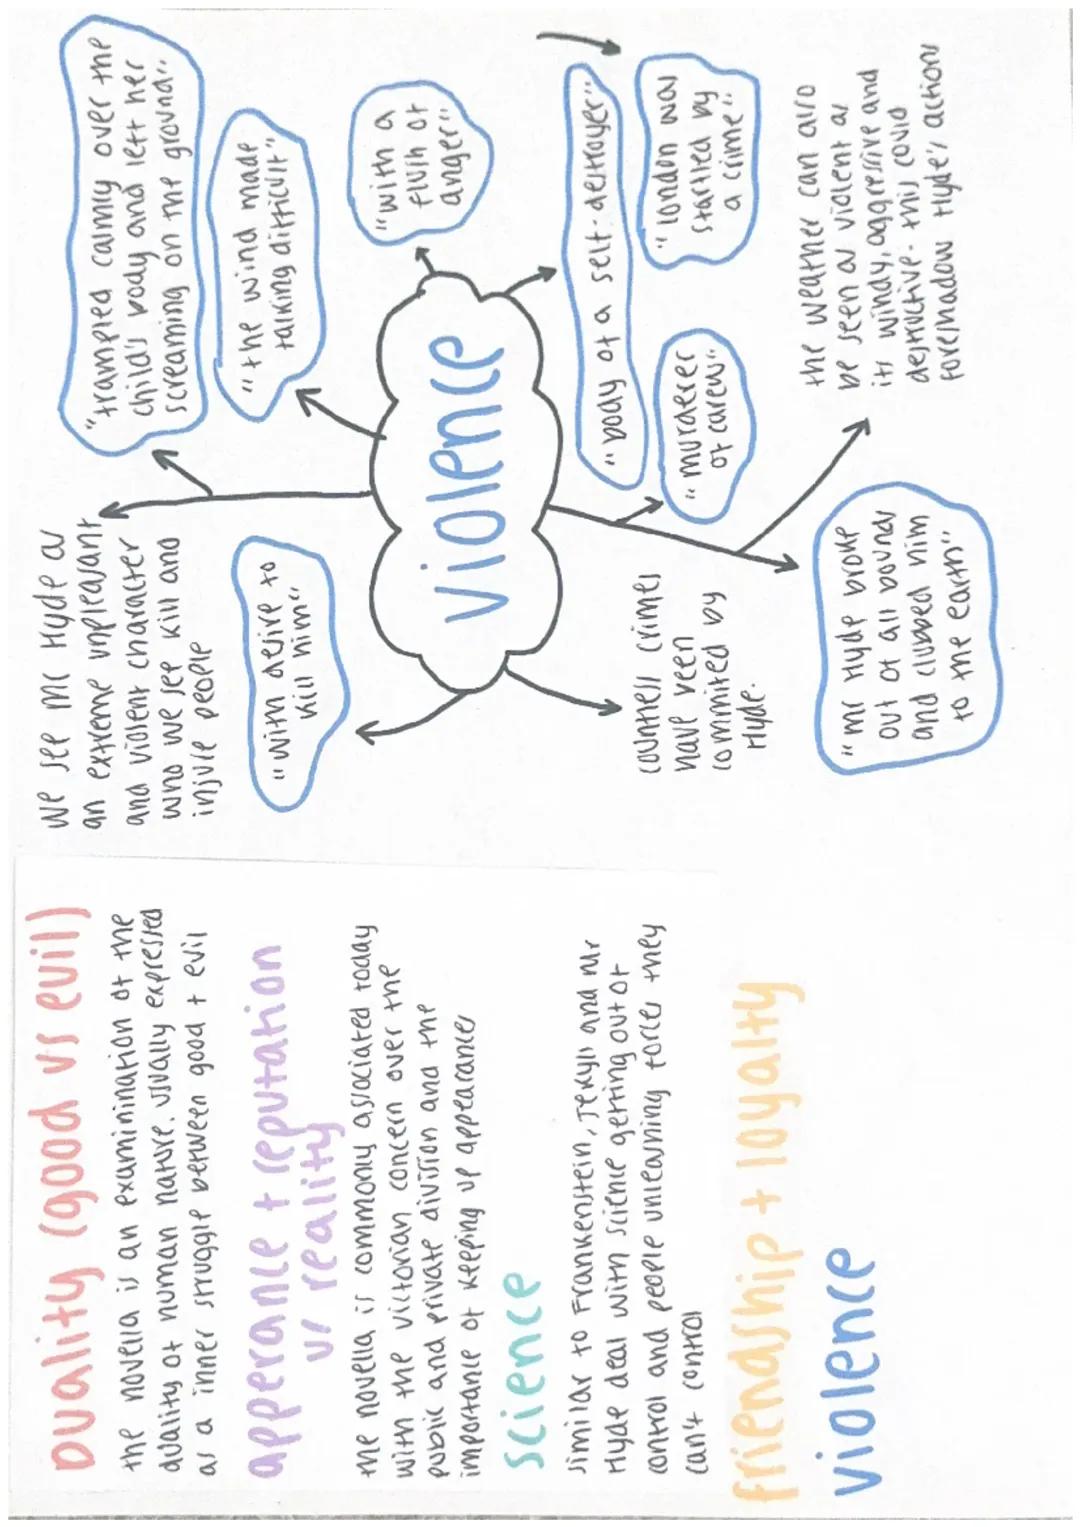 Duality (good vs evil)
the novella is an examinination of the
duality of human nature. usually expressed
as a inner struggle between good + evil
apperance + reputation
vs reality
the novella is commonly associated today
with the victorian concern over the
public and private division and the
importance of keeping up appearances
science
similar to Frankenstein, Jekyll and Mr
Hyde deal with science getting out of
control and people unleashing forces they
can't control
friendship + loyalty
violence
we see Mr Hyde as
an extreme unpleasant
and violent character
who we see kill and
injure people
"trampled calmly over the
child's body and left her
screaming on the ground"
"with desire to
kill him"
"the wind made
talking difficult"
"with a
flush of
anger"
violence
"body of a self-destroyer"
countless crimes
have been
commited by
Hyde.
"murderer
of carew"
"london was
startled by
a crime"
"mr Hyde broke
out of all bounds
and clubbed him
to the earth"
the weather can also
be seen as violent as
its windy, aggressive and
destructive - this could
foreshadow Hyde's actions